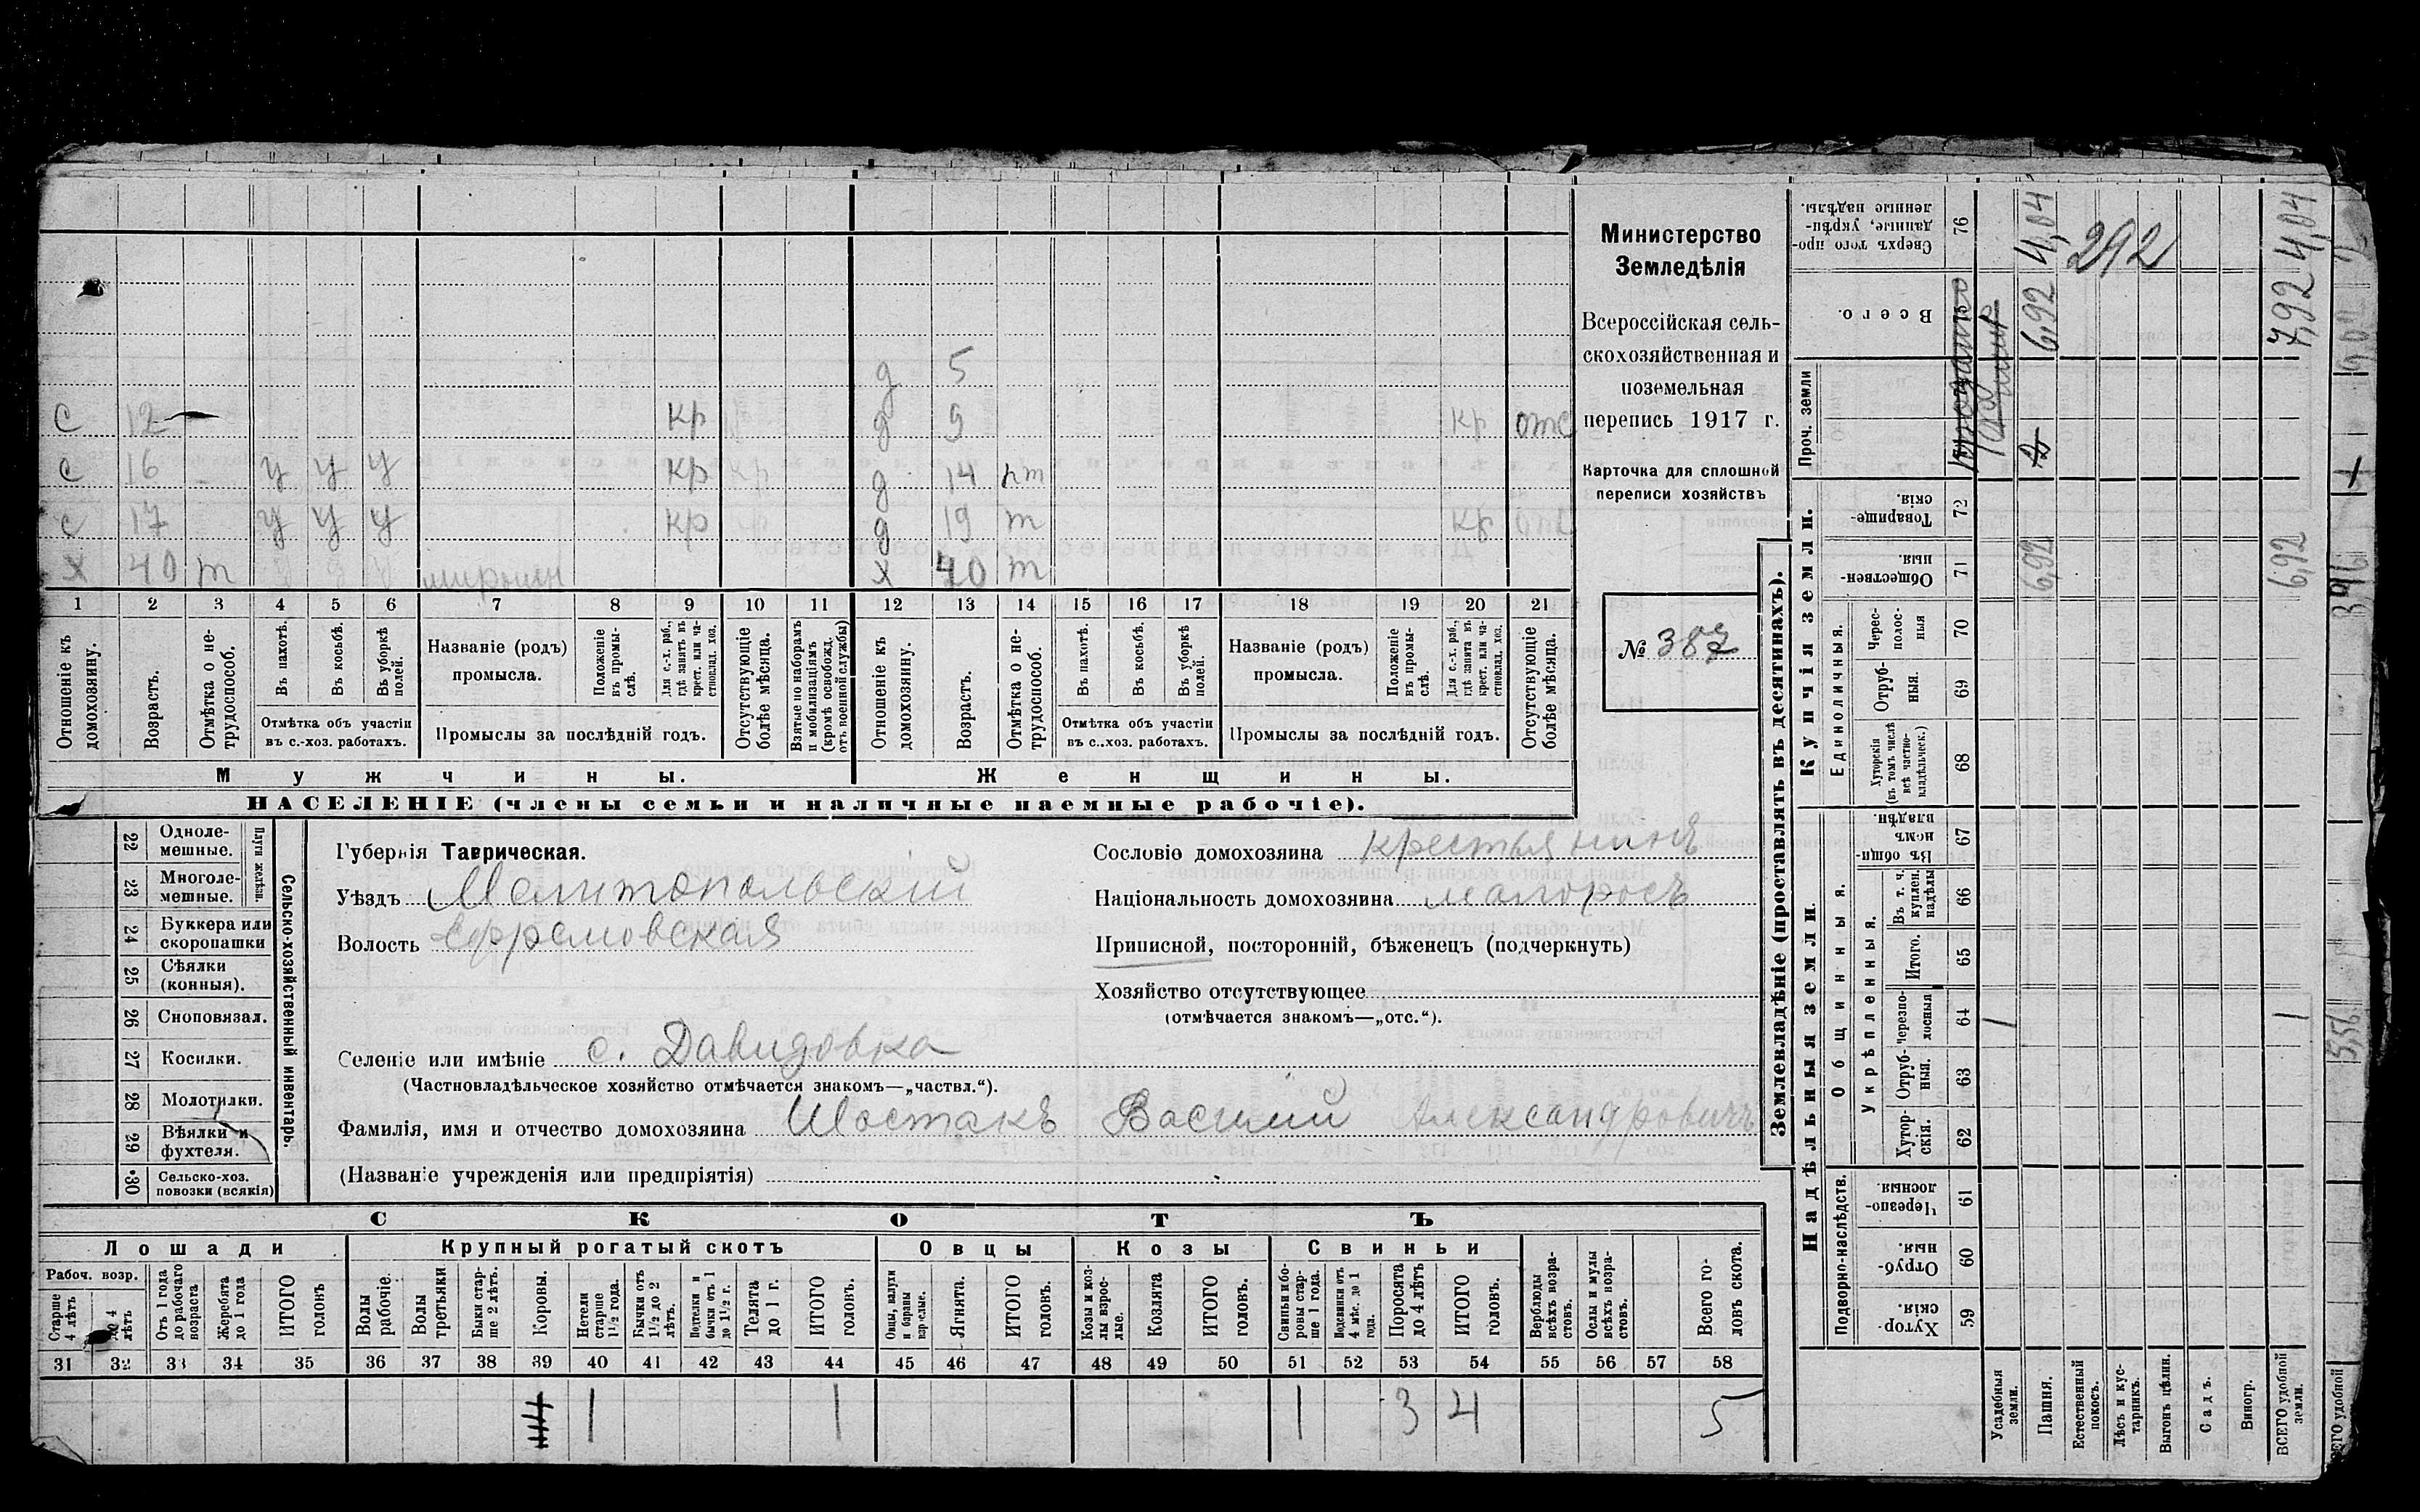 с 12 кр
с 16 у у у кр
с 17 у у у кр
х 40 т
д 5
д 9 кр отс
д 14 пт
д 19 т кр отс
х 40 т
1 2 3 4 5 6 7 8 9 10 11 12 13 14 15 16 17 18 19 20 21
Отношеніе къ домохозяину.
Возрастъ.
Отмѣтка о не-трудоспособ.
Въ пахотѣ.
Въ косьбѣ.
Въ уборкѣ полей.
Отмѣтка объ участіи въ с.-хоз. работахъ.
Названіе (родъ) промысла.
Положеніе въ промы-слѣ.
Для с.-х. раб., гдѣ занятъ въ крест. или ча-стновлад. хоз.
Промыслы за послѣдній годъ.
Отсутствующіе болѣе мѣсяца.
Взятые по наборамъ и мобилизаціямъ (кромѣ освобожд. отъ военной службы)
Отношеніе къ домохозяину.
Возрастъ.
Отмѣтка о не-трудоспособ.
Въ пахотѣ.
Въ косьбѣ.
Въ уборкѣ полей.
Отмѣтка объ участіи въ с.-хоз. работахъ.
Названіе (родъ) промысла.
Положеніе въ промы-слѣ.
Для с.-х. раб., гдѣ занята въ крест. или ча-стновлад. хоз.
Промыслы за послѣдній годъ.
Отсутствующіе болѣе мѣсяца.
Мужчины.
Женщины.
НАСЕЛЕНІЕ (члены семьи и наличные наемные рабочіе).
Министерство
Земледѣлія
Всероссійская сель-
скохозяйственная и
поземельная
перепись 1917 г.
Карточка для сплошной
переписи хозяйствъ
№ 387
Сельско-хозяйственный инвентарь.
Плуги желѣзн.
22 Одноле-мешные.
23 Многоле-мешные.
24 Буккера или скоропашки
25 Сѣялки (конныя).
26 Сноповязал.
27 Косилки.
28 Молотилки.
29 Вѣялки и фухтеля.
30 Сельско-хоз. повозки (всякія)
Губернія Таврическая.
Уѣздъ Мелитопольскій
Волость Ефремовская
Селеніе или имѣніе с. Давидовка
(Частновладѣльческое хозяйство отмѣчается знакомъ—„частвл.“).
Фамилія, имя и отчество домохозяина Шостакъ Василий Александровичъ
(Названіе учрежденія или предпріятія)
Сословіе домохозяина крестьянинъ
Національность домохозяина малоросъ
Приписной, посторонній, бѣженецъ (подчеркнуть)
Хозяйство отсутствующее
(отмѣчается знакомъ—„отс.“).
СКОТЪ
Лошади
Крупный рогатый скотъ
Овцы
Козы
Свиньи
Рабоч. возр.
Старше 4 лѣтъ
до 4 лѣтъ
Отъ 1 года до рабочаго возраста
Жеребята до 1 года
ИТОГО головъ
Волы рабочіе.
Волы третьяки
Быки стар-ше 2 лѣтъ.
Коровы.
Нетели старше 1½ года.
Бычки отъ 1½ до 2 лѣтъ.
Подтелки и бычки отъ 1 до 1½ г.
Телята до 1 г.
ИТОГО головъ.
Овцы, валухи и бараны взрослые.
Ягнята.
ИТОГО головъ.
Козы и коз-лы взрос-лые.
Козлята
ИТОГО головъ.
Свиньи и бо-ровы стар-ше 1 года.
Подсвинки отъ 4 мѣс. до 1 года.
Поросята до 4 лѣтъ
ИТОГО головъ.
Верблюды всѣхъ возра-стовъ.
Ослы и мулы всѣхъ возра-стовъ.
Всего го-ловъ скота.
31 32 33 34 35 36 37 38 39 40 41 42 43 44 45 46 47 48 49 50 51 52 53 54 55 56 57 58
1 1 1 3 4 5
Землевладѣніе (проставлять въ десятинахъ).
Надѣльныя земли.
Купчія земли.
Проч. земли
Подворно-наслѣдств.
Общинныя.
Укрѣпленныя.
Единоличныя.
Хутор-скія. 59
Отруб-ныя. 60
Черезпо-лосныя. 61
Хутор-скія. 62
Отруб-ныя. 63
Черезпо-лосныя 64
Итого. 65
Въ т. ч. куплен. надѣлы 66
Въ общи-номъ владѣн. 67
Хуторскія (въ томъ числѣ всѣ частно-владѣльческ.) 68
Отруб-ныя. 69
Черес-полос-ныя 70
Обществен-ныя 71
Товарище-скія. 72
Всего.
Сверхъ того про-данные, укрѣп-ленные надѣлы. 76
Усадебныя земли. 1
Пашня. 6,92 6,92 4,04
Естественный покосъ. 292
Лѣсъ и кус-тарникъ.
Выгонъ цѣлин.
Садъ.
Виногр.
ВСЕГО удобной земли. 1 6,92 7,92 4,04